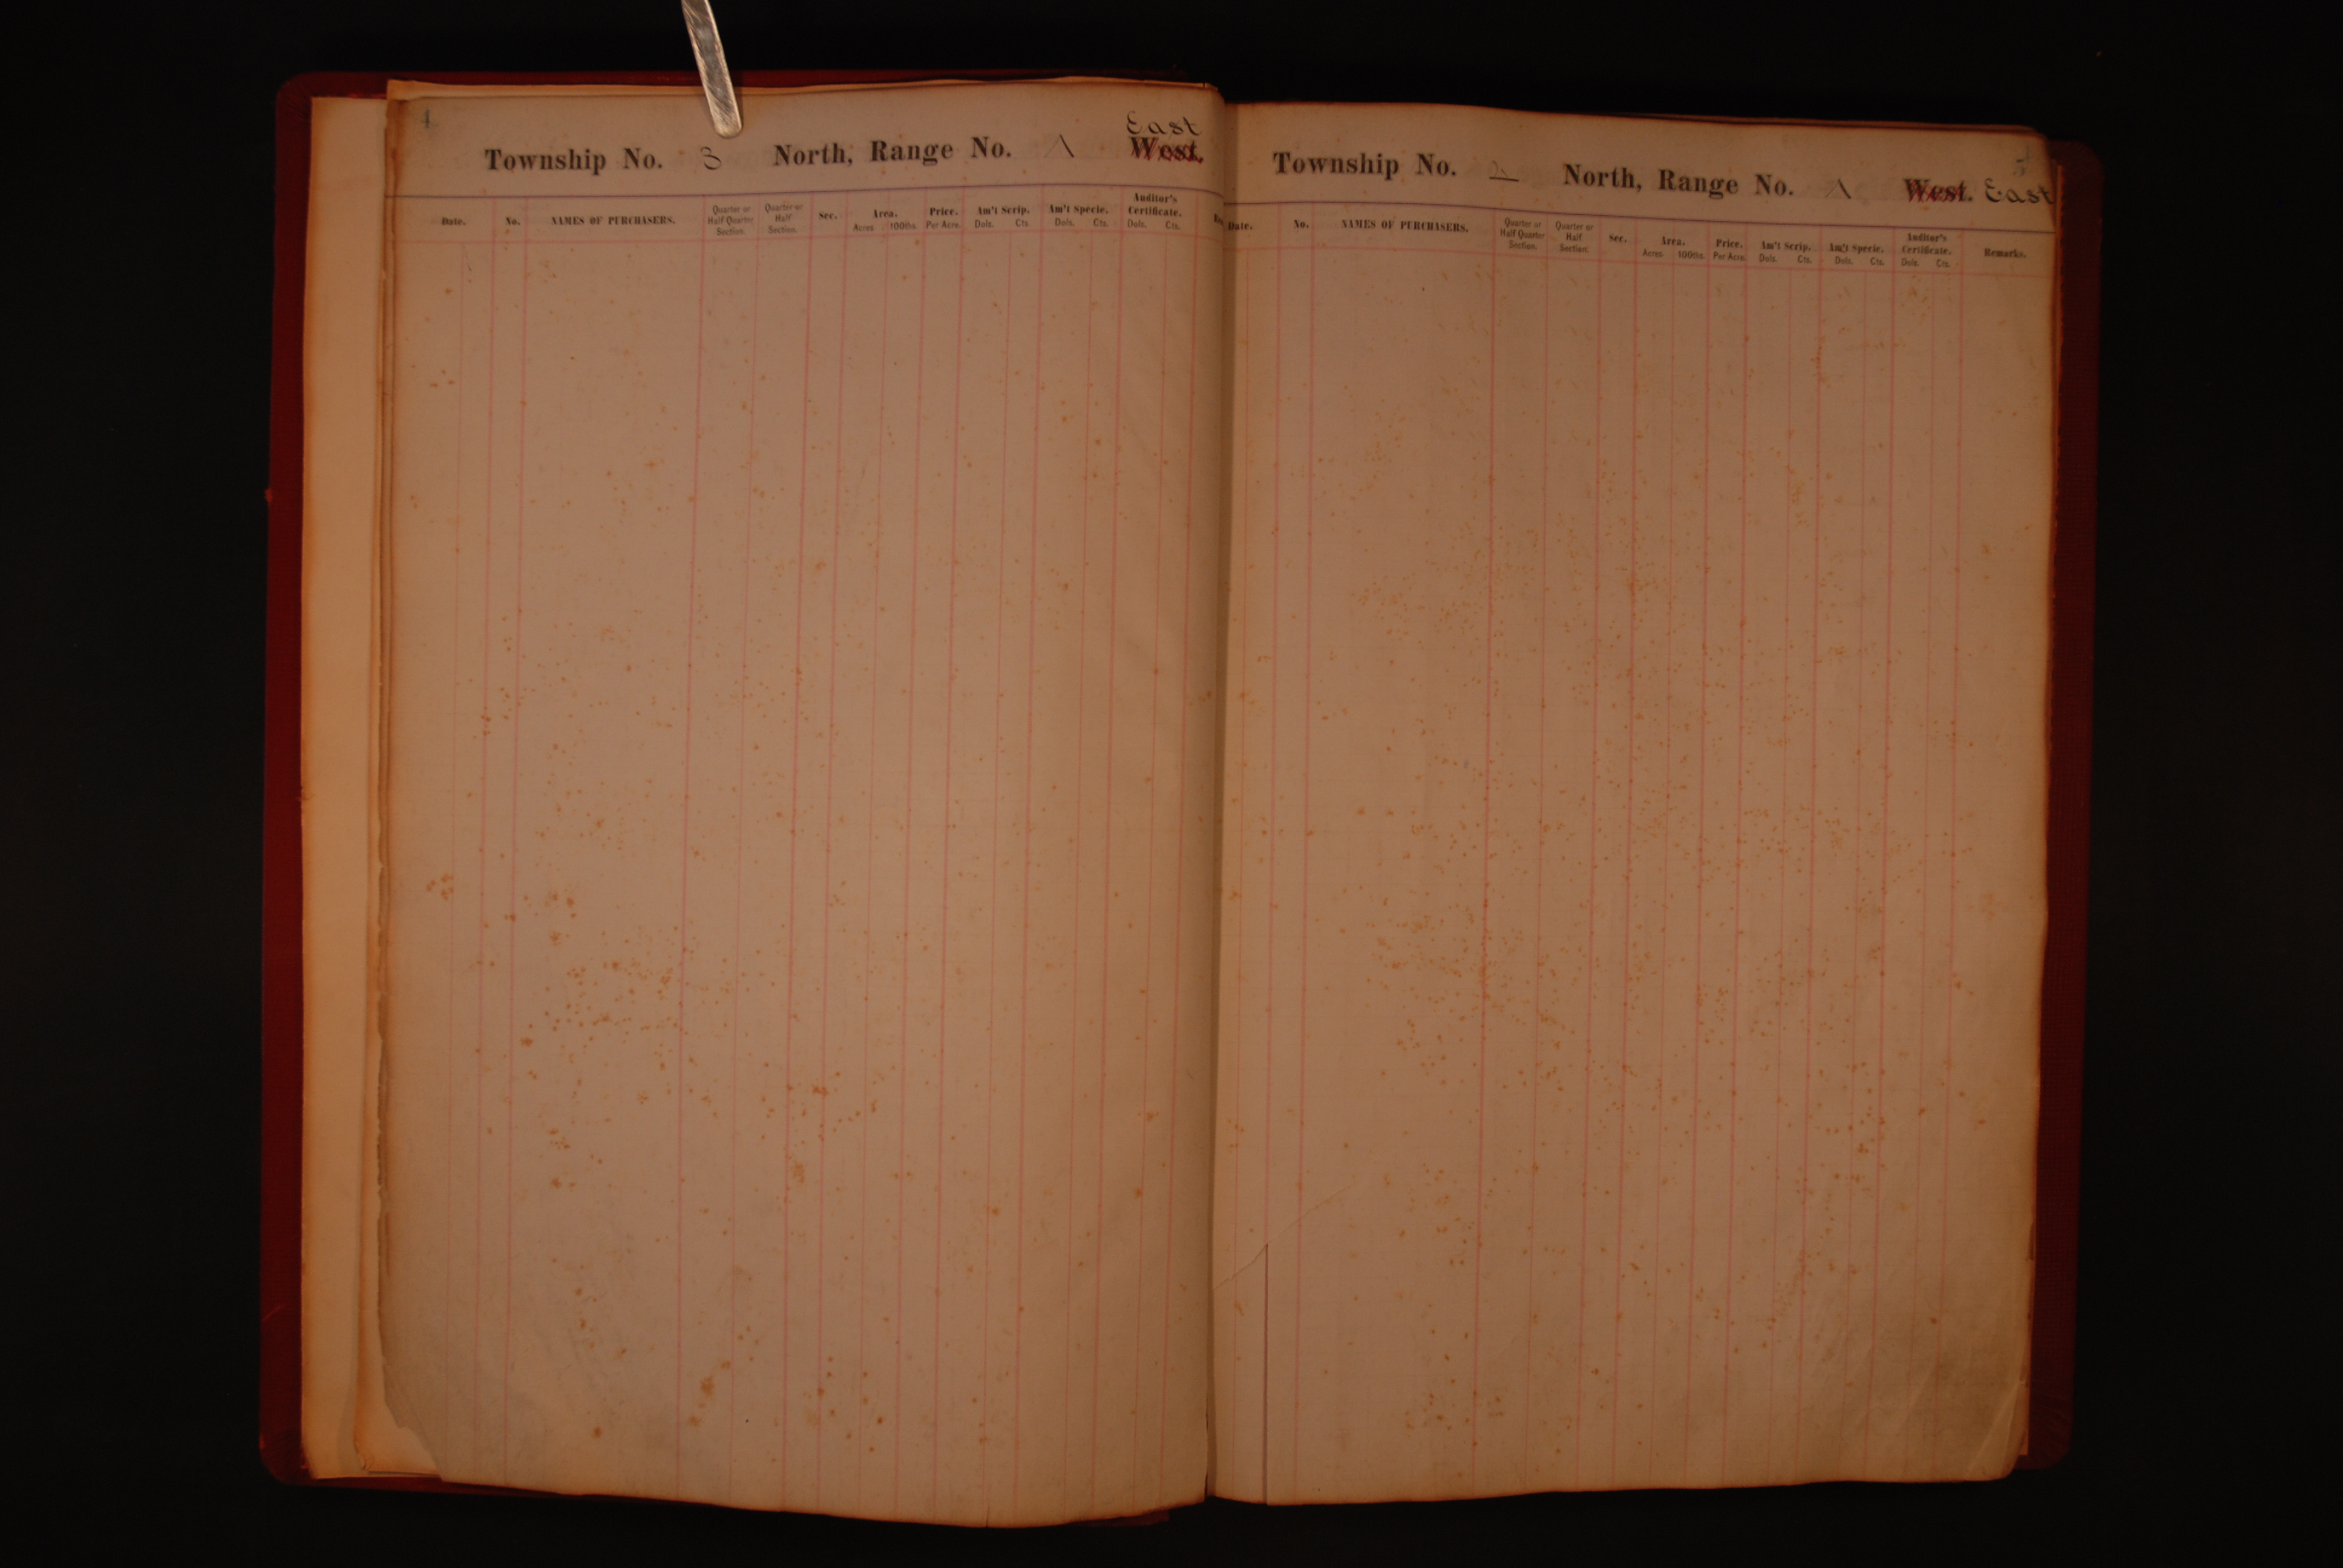 4
East
Township No. 3 North, Range No. 1 West.
Date. No. NAMES OF PURCHASERS. Quarter or Half Quarter Section. Quarter or Half Section. Sec. Area. Acres 100ths. Price. Per Acre. Am't Scrip. Dols. Cts. Am't Specie. Dols. Cts. Auditor's Certificate. Dols. Cts.
5
Township No. 2 North, Range No. 1 West. East
Date. No. NAMES OF PURCHASERS. Quarter or Half Quarter Section. Quarter or Half Section. Sec. Area. Acres 100ths. Price. Per Acre. Am't Scrip. Dols. Cts. Am't Specie. Dols. Cts. Auditor's Certificate. Dols. Cts. Remarks.